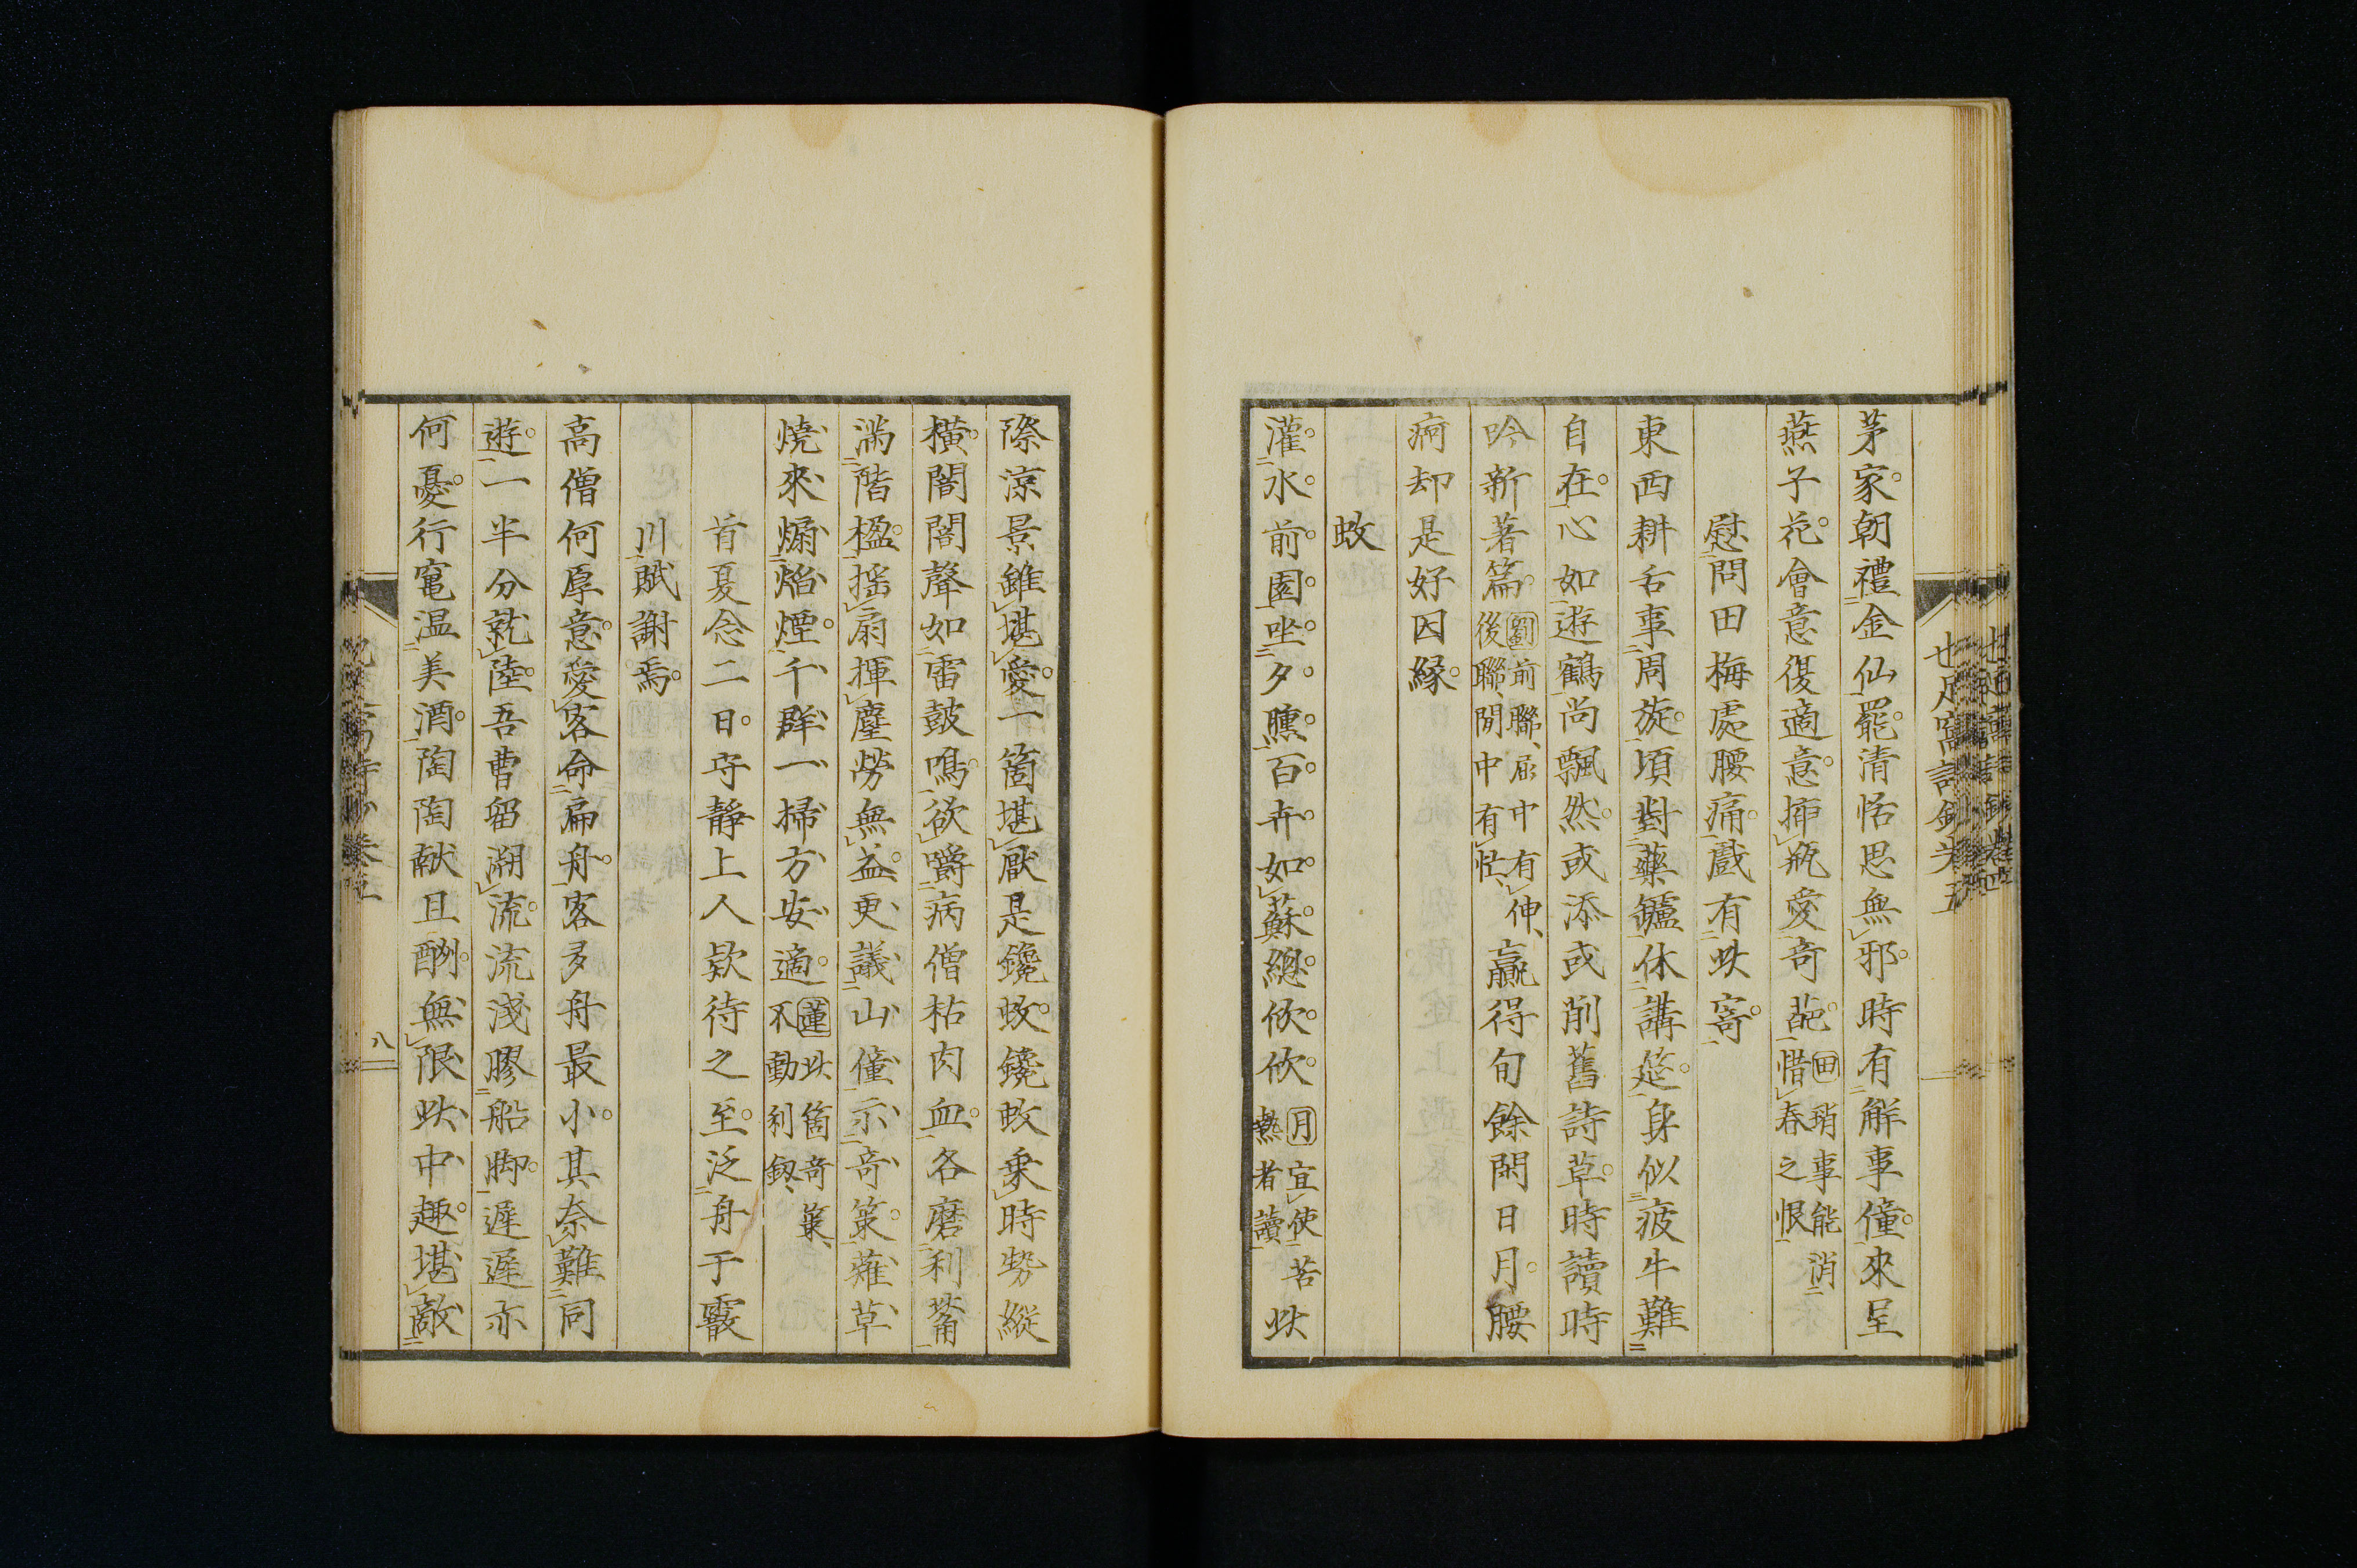 茅家朝禮金仙罷清恬思無邪時有解事僮來呈
燕子花會意復適意挿瓶愛奇葩田稍事能消惜春之恨
慰問田梅處腰痛戲有此寄
東西耕舌事周旋頃對藥鑪休講筵身似疲牛難
自在心如遊鶴尚飄然或添或削舊詩草時讀時
吟新著篇劉前聯屈中有伸後聯閒中有忙贏得旬餘閑日月腰
痾却是好因縁
蚊
灌水前園坐夕曛百卉如蘇總欣欣月宜使苦熱者讀此
際涼景雖堪愛一箇堪厭是鑱蚊鑱蚊乗時勢縱
橫闇闇聲如雷鼓鳴欲嚼病僧枯肉血各磨利觜
滿階楹搖扇揮麈勞無益更議山僮示奇策薙草
燒來煽焰煙千群一掃方安適蓮此箇奇策不動利劔
首夏念二日守靜上人欵待之至泛舟于霞
川賦謝焉
高僧何厚意愛客命扁舟客多舟最小其奈難同
遊一半分就陸吾曹留溯流流淺膠船脚遲遲亦
何憂行竃温美酒陶陶献且酬無限此中趣堪敵
八